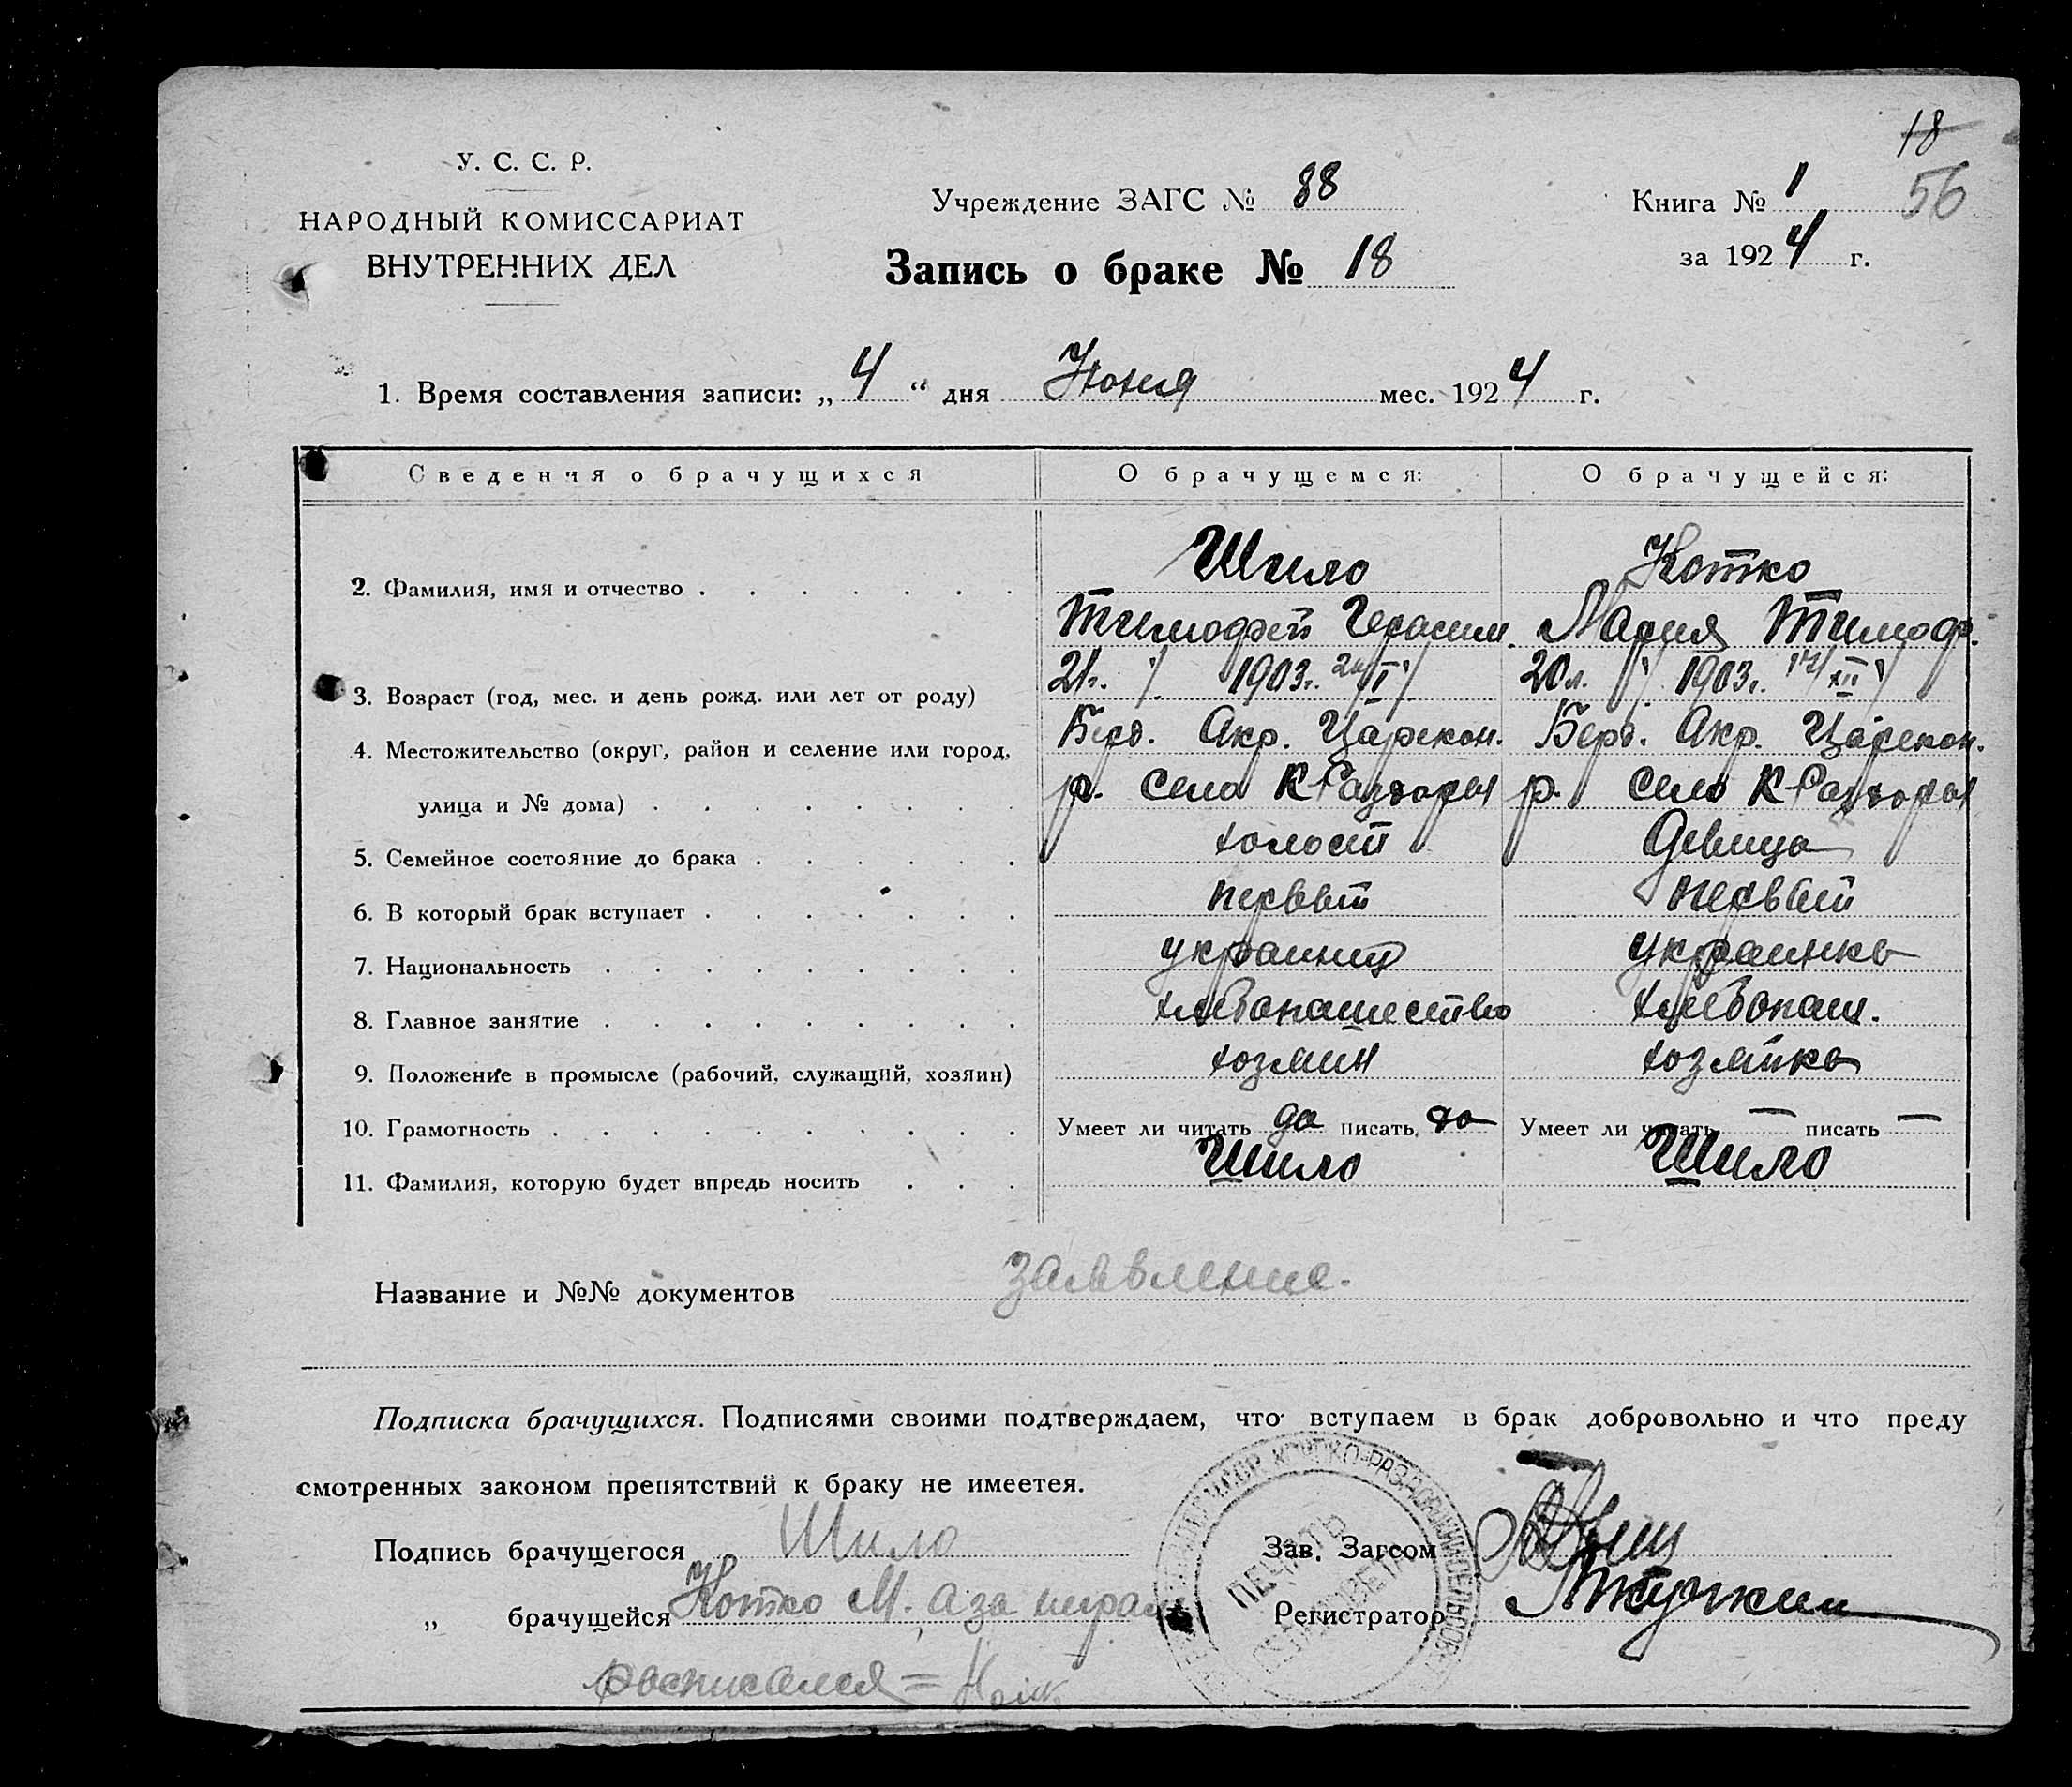 18
56
У. С. С. Р.
НАРОДНЫЙ КОМИССАРИАТ
ВНУТРЕННИХ ДЕЛ
Учреждение ЗАГС № 88
Книга № 1
за 1924 г.
Запись о браке № 18
1. Время составления записи: „4“ дня Июня мес. 1924 г.
Сведения о брачущихся О брачущемся: О брачущейся:
Шило Котко
2. Фамилия, имя и отчество
Тимофей Герасим. Мария Тимоф.
3. Возраст (год, мес. и день рожд. или лет от роду) 21г. 1903г. 20л. 1903г.
4. Местожительство (округ, район и селение или город, Берд. Окр. Царекон. Берд. Окр. Царекон.
улица и № дома) р. село К-Раздоры р. село К-Раздоры
5. Семейное состояние до брака холост девица
6. В который брак вступает первый первый
7. Национальность украинец украинка
8. Главное занятие хлебопашество хлебопаш.
9. Положение в промысле (рабочий, служащий, хозяин) хозяин хозяйка
10. Грамотность Умеет ли читать да писать да Умеет ли читать — писать —
11. Фамилия, которую будет впредь носить Шило Шило
Название и №№ документов заявление.
Подписка брачущихся. Подписями своими подтверждаем, что вступаем в брак добровольно и что преду
смотренных законом препятствий к браку не имеетея.
Подпись брачущегося Шило Зав. Загсом
„ брачущейся Котко М. а за Регистратор
росписался =
ПЕЧАТЬ